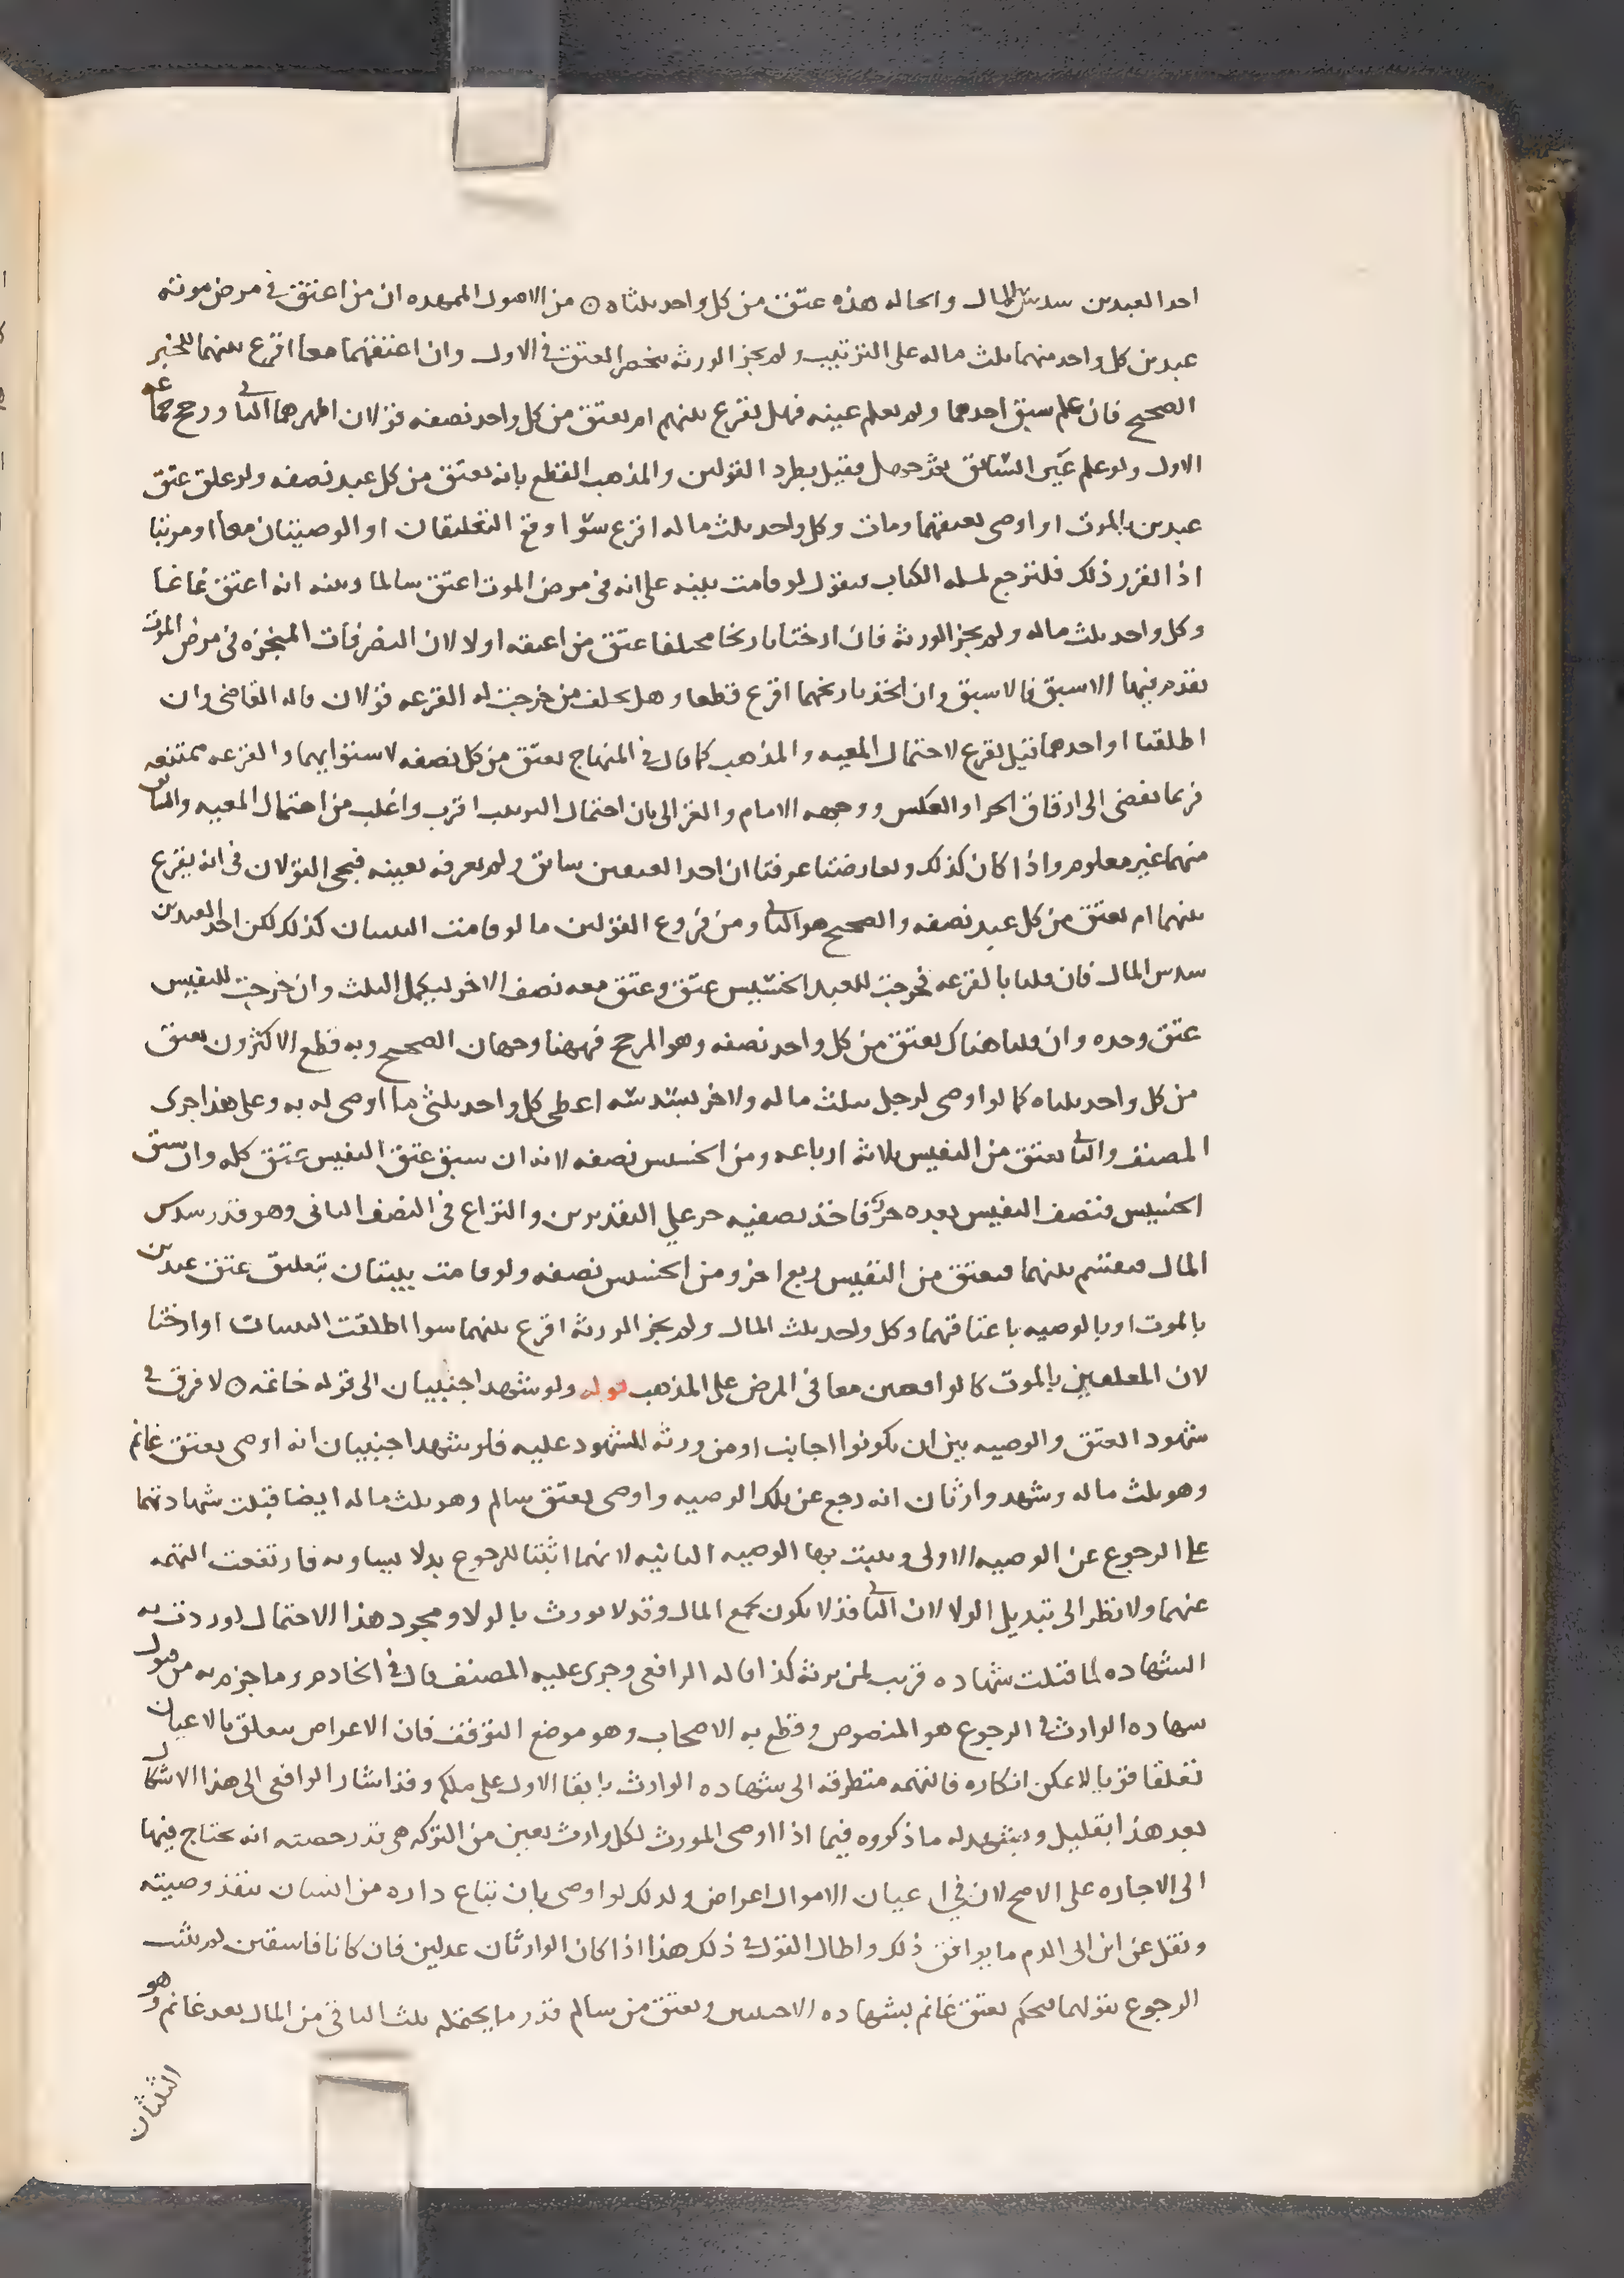 احد العبدين سدس المال والحاله هذه عتق من كل واحد ثلثاه ۝ من الاصول الممهده ان من اعتق في مرض موته
عبدين كل واحد منهما ثلث ماله على الترتيب ولم يجز الورثه ينحصر العتق في الاول وان اعتقهما معا اقرع بينهما للخبر
الصحيح فان علم سبق احدهما ولم يعلم عينه فهل يقرع بينهم ام يعتق من كل واحد نصفه قولان اظهرهما الثاني ورجح جماعه
الاول ولو علم عين السابق ثم جهل فقيل بطرد القولين والمذهب القطع بانه يعتق من كل عبد نصفه ولو علق عتق
عبدين بالموت او اوصى بعتقهما ومات وكل واحد ثلث ماله اقرع سوا وقع التعليقان او الوصيتان معا او مرتبا
اذا تقرر ذلك فلنرجع لمسله الكتاب فنقول لو قامت بينه على انه في مرض الموت اعتق سالما وبينه انه اعتق غانما
وكل واحد ثلث ماله ولم يجز الورثه فان ارختا تاريخا مختلفا عتق من اعتقه اولا لان التصرفات المنجزه في مرض الموت
يقدم فيها الاسبق فالاسبق وان اتحد تاريخهما اقرع قطعا وهل يحلف من خرجت له القرعه قولان قاله القاضي وان
اطلقتا او احدهما قيل يقرع لاحتمال المعيه والمذهب كما قال في المنهاج يعتق من كل نصفه لاستوايهما والقرعه ممتنعه
فربما تفضى الى ارقاق الحر او العكس ووجهه الامام والغزالى بان احتمال الترتيب اقرب واغلب من احتمال المعيه والسابق
منهما غير معلوم واذا كان كذلك وتعارضتا عرفنا ان احد العتقين سابق ولم يعرفه بعينه فيجى القولان في انه يقرع
بينهما ام يعتق من كل عبد نصفه والصحيح هو الثاني ومن فروع القولين ما لو قامت البينتان كذلك لكن احد العبدين
سدس المال فان قلنا بالقرعه فخرجت للعبد الخسيس عتق وعتق معه نصف الاخر ليكمل الثلث وان خرجت للنفيس
عتق وحده وان قلنا هناك يعتق من كل واحد نصفه وهو المرجح فههنا وجهان الصحيح وبه قطع الاكثرون يعتق
من كل واحد ثلثاه كما لو اوصى لرجل بثلث ماله ولاخر بسدسه اعطى كل واحد ثلثى ما اوصى له به وعلى هذا جرى
المصنف والثاني يعتق من النفيس ثلاثه ارباعه ومن الخسيس نصفه لانه ان سبق عتق النفيس عتق كله وان سبق
الخسيس فنصف النفيس بعده حر فاخذ نصفيه حر على التقديرين والنزاع في النصف الثانى وهو قدر سدس
المال فيقسم بينهما فيعتق من النفيس ربع اخر ومن الخسيس نصفه ولو قامت بينتان بتعليق عتق عبدين
بالموت او بالوصيه باعتاقهما وكل واحد ثلث المال ولم يجز الورثه اقرع بينهما سوا اطلقت البينتان او ارختا
لان المعلقين بالموت كالواقعين معا في المرض على المذهب قوله ولو شهد اجنبيان الى قوله خاتمه ۝ لا فرق في
شهود العتق والوصيه بين ان يكونوا اجانب او من ورثه المشهود عليه فلو شهد اجنبيان انه اوصى بعتق غانم
وهو ثلث ماله وشهد وارثان انه رجع عن تلك الوصيه واوصى بعتق سالم وهو ثلث ماله ايضا قبلت شهادتهما
على الرجوع عن الوصيه الاولى ويثبت بها الوصيه الثانيه لانهما اثبتا للرجوع بدلا يساويه فارتفعت التهمه
عنهما ولا نظر الى تبديل الولا لان الثاني قد لا يكون بجمع المال وقد لا يورث بالولا ومجرد هذا الاحتمال لو ردت به
الشهاده لما قبلت شهاده قريب لمن يرثه كذا قاله الرافعى وجرى عليه المصنف قال في الخادم وما جزم به من قبول
شهاده الوارث في الرجوع هو المنصوص وقطع به الاصحاب وهو موضع التوقف فان الاغراض تتعلق بالاعيان
تعلقا قويا لا يمكن انكاره فالتهمه متطرقه الى شهاده الوارث بابقا الاول على ملكه وقد اشار الرافعى الى هذا الاشكال
بعد هذا بقليل ويشهد له ما ذكروه فيما اذا اوصى المورث لكل وارث بعين من التركه هي قدر حصته انه يحتاج فيها
الى الاجازه على الاصح لان في اعيان الاموال اغراض ولذلك لو اوصى بان تباع داره من انسان تنفذ وصيته
ونقل عن ابن ابى الدم ما يوافق ذلك واطال القول في ذلك هذا اذا كان الوارثان عدلين فان كانا فاسقين لم يثبت
الرجوع بقولهما فيحكم بعتق غانم بشهاده الاجنبيين ويعتق من سالم قدر ما يحتمله ثلث الباقي من المال بعد غانم وهو
الثلثان